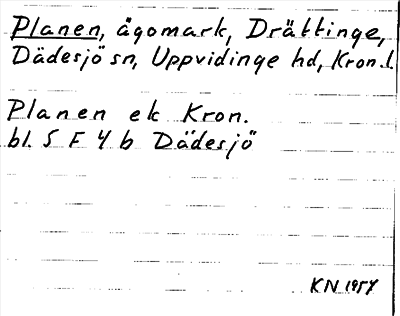 Planen, ägomark, Drättinge,
Dädesjö sn, Uppvidinge hd, Kron.l.
Planen ek Kron.
bl. 5 F 4 b Dädesjö
KN 1957